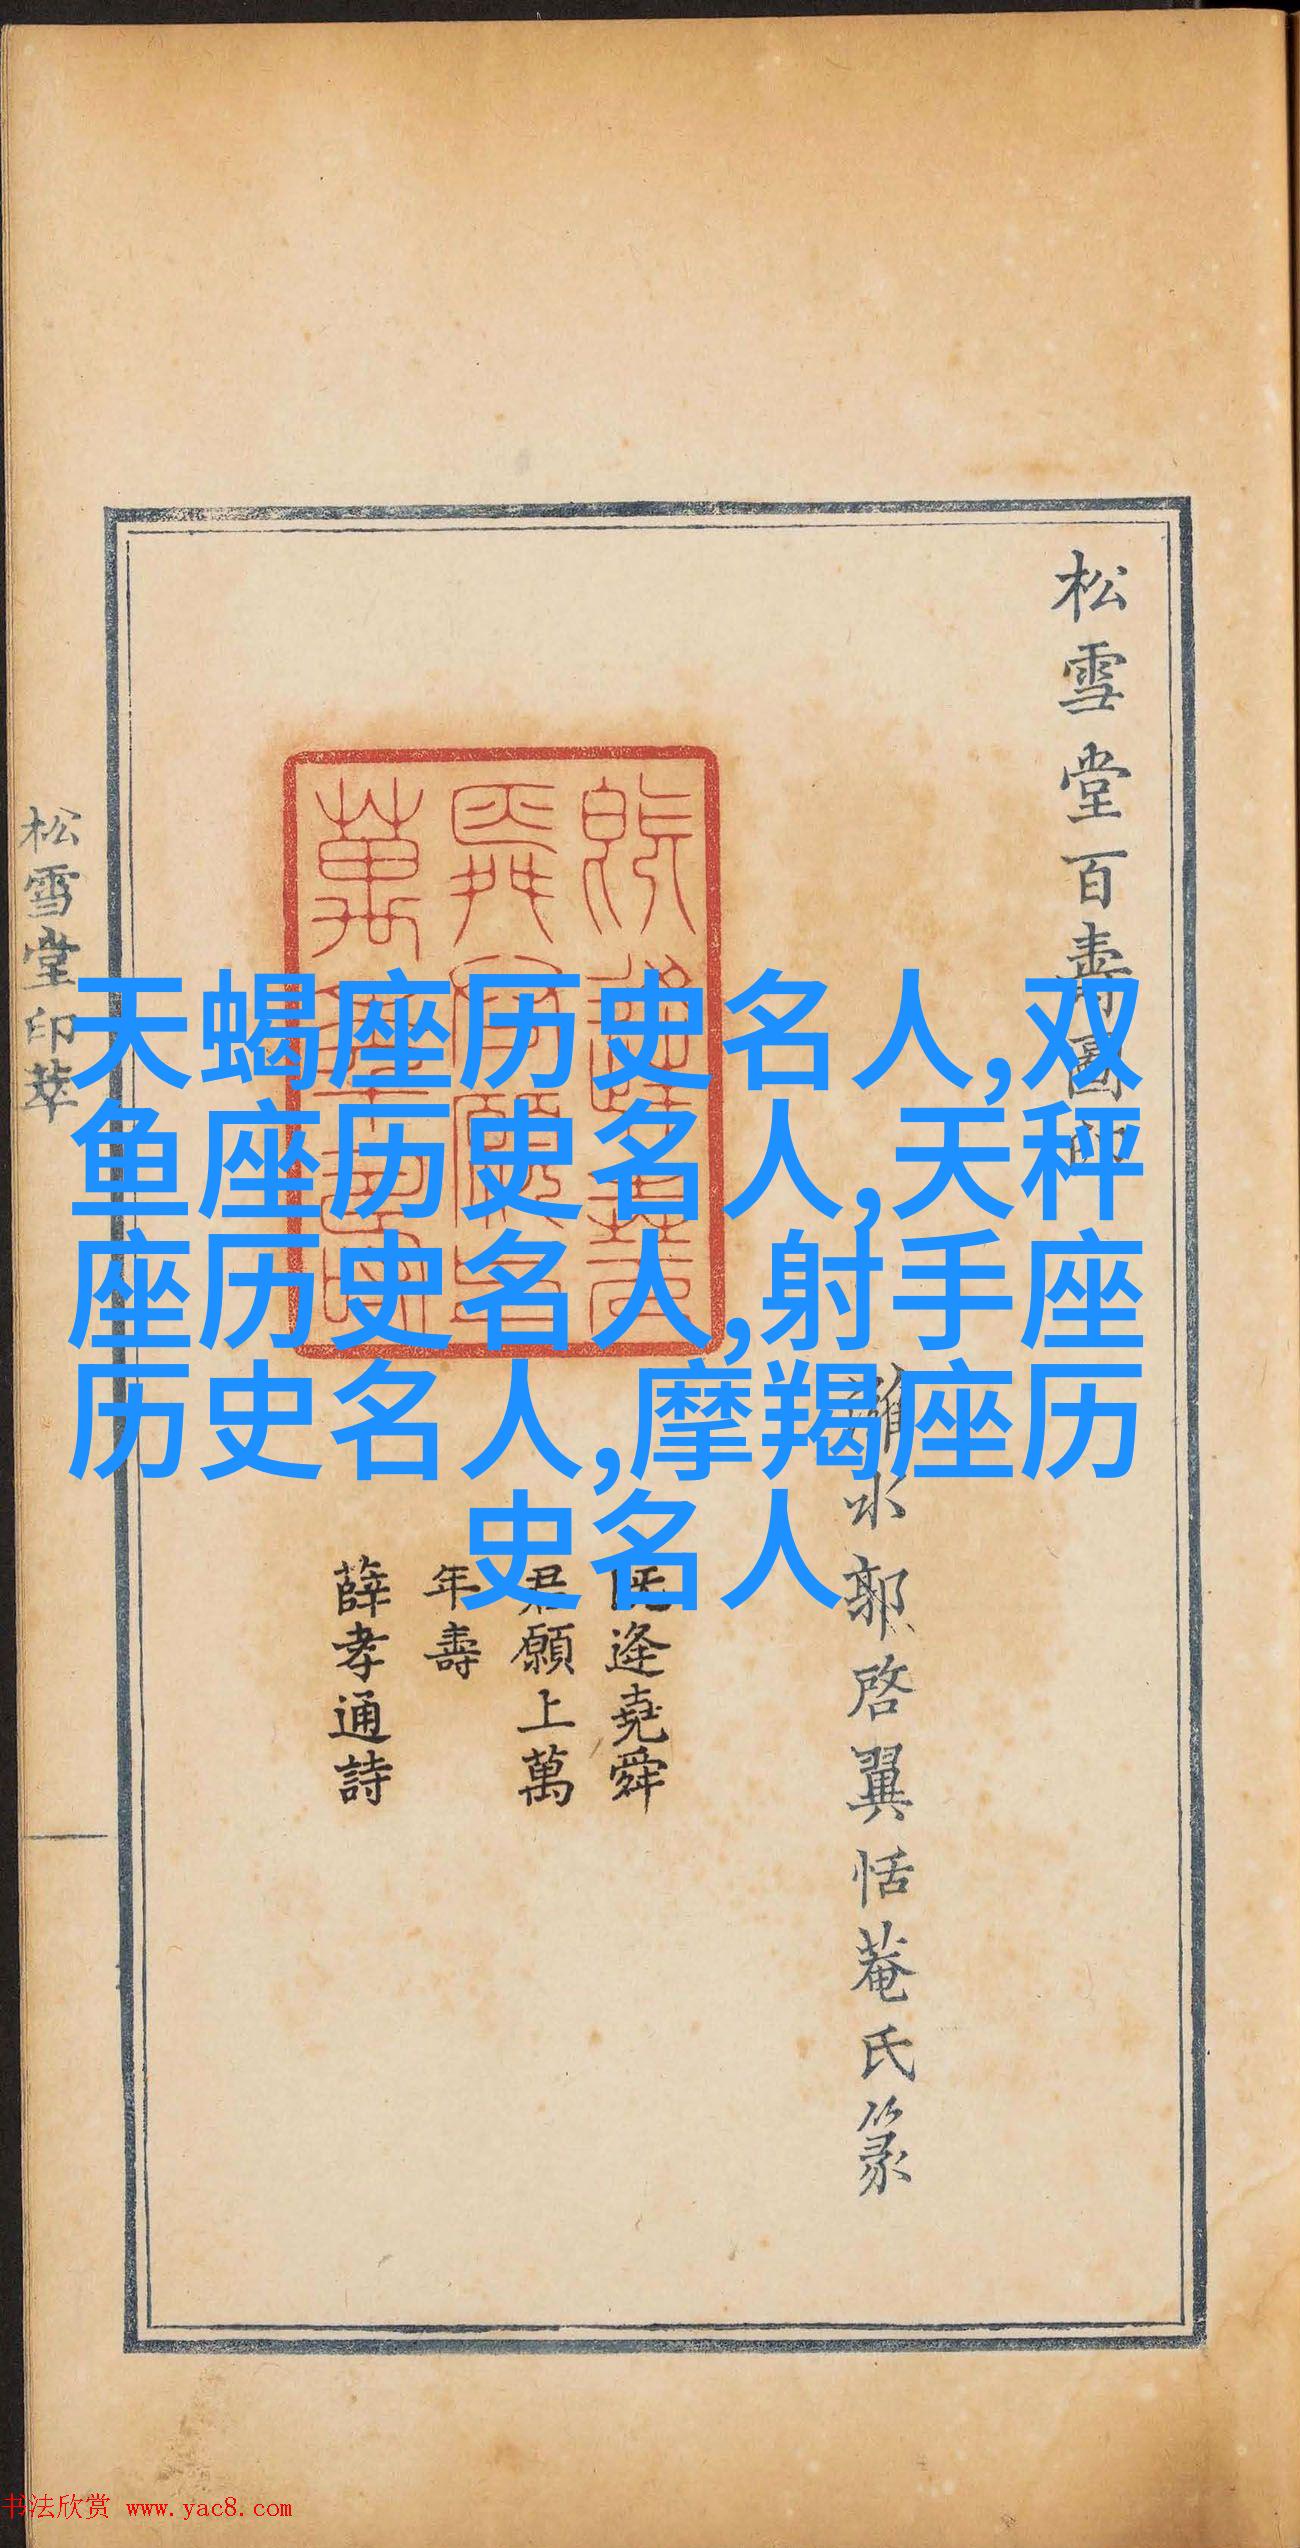 松雪堂百壽圖印
濰水郭啓翼恬菴氏篆
既逢堯舜
君願上萬
年壽
薛孝通詩
松雪堂印萃
天蝎座历史名人,双
鱼座历史名人,天秤
座历史名人,射手座
历史名人,摩羯座历
史名人
书法欣赏 www.yac8.com